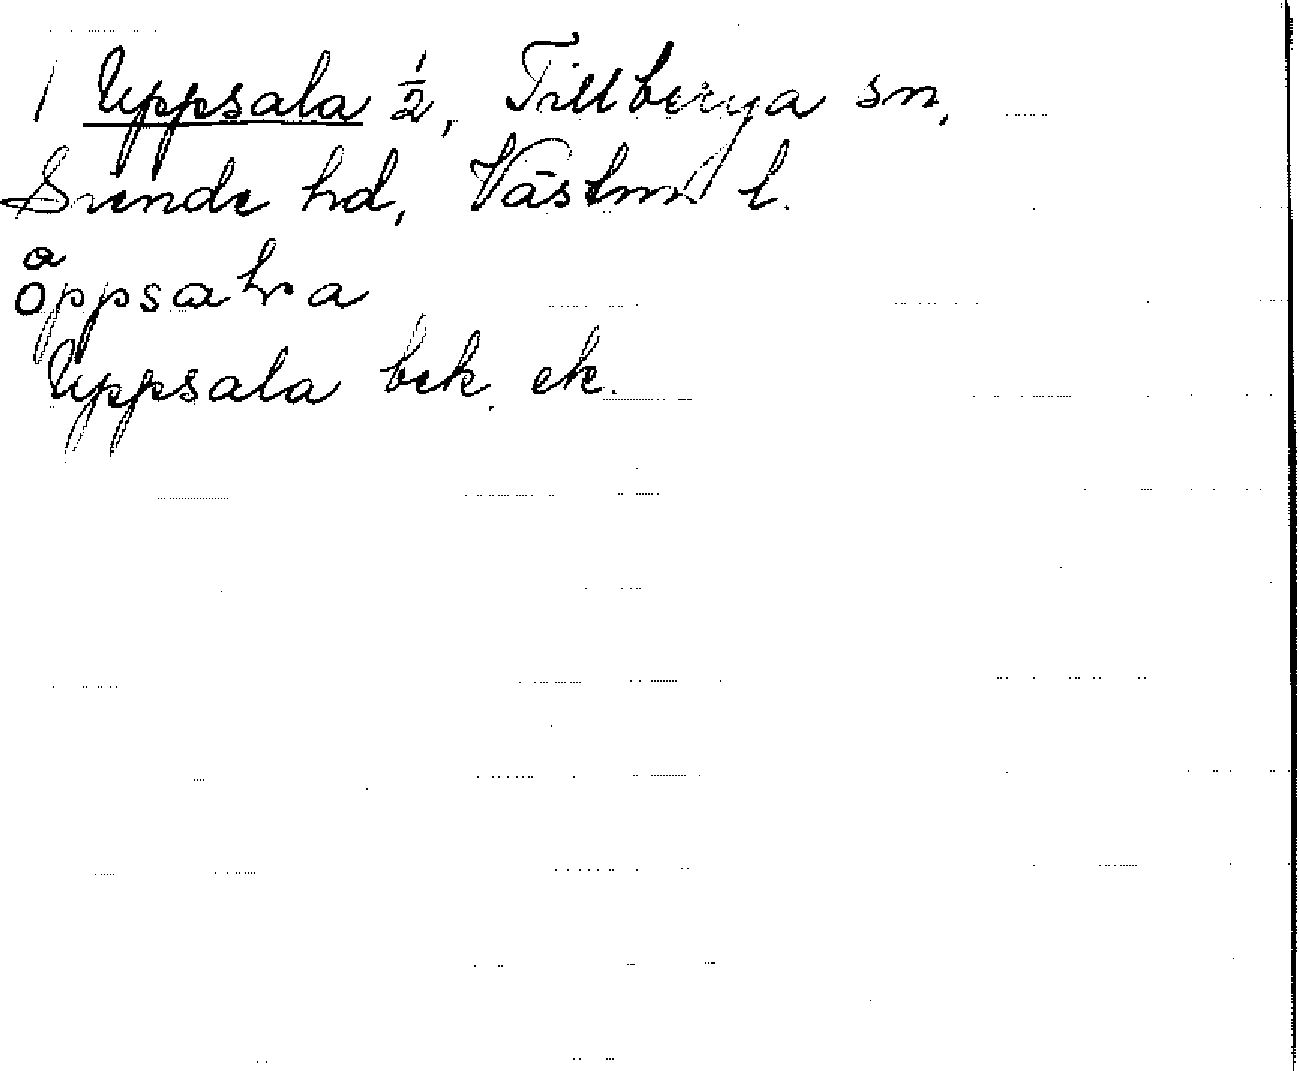 1 Uppsala ½, Tillberga sn,
Siende hd, Västm. l.
a
öppsala
Uppsala bek. ek.